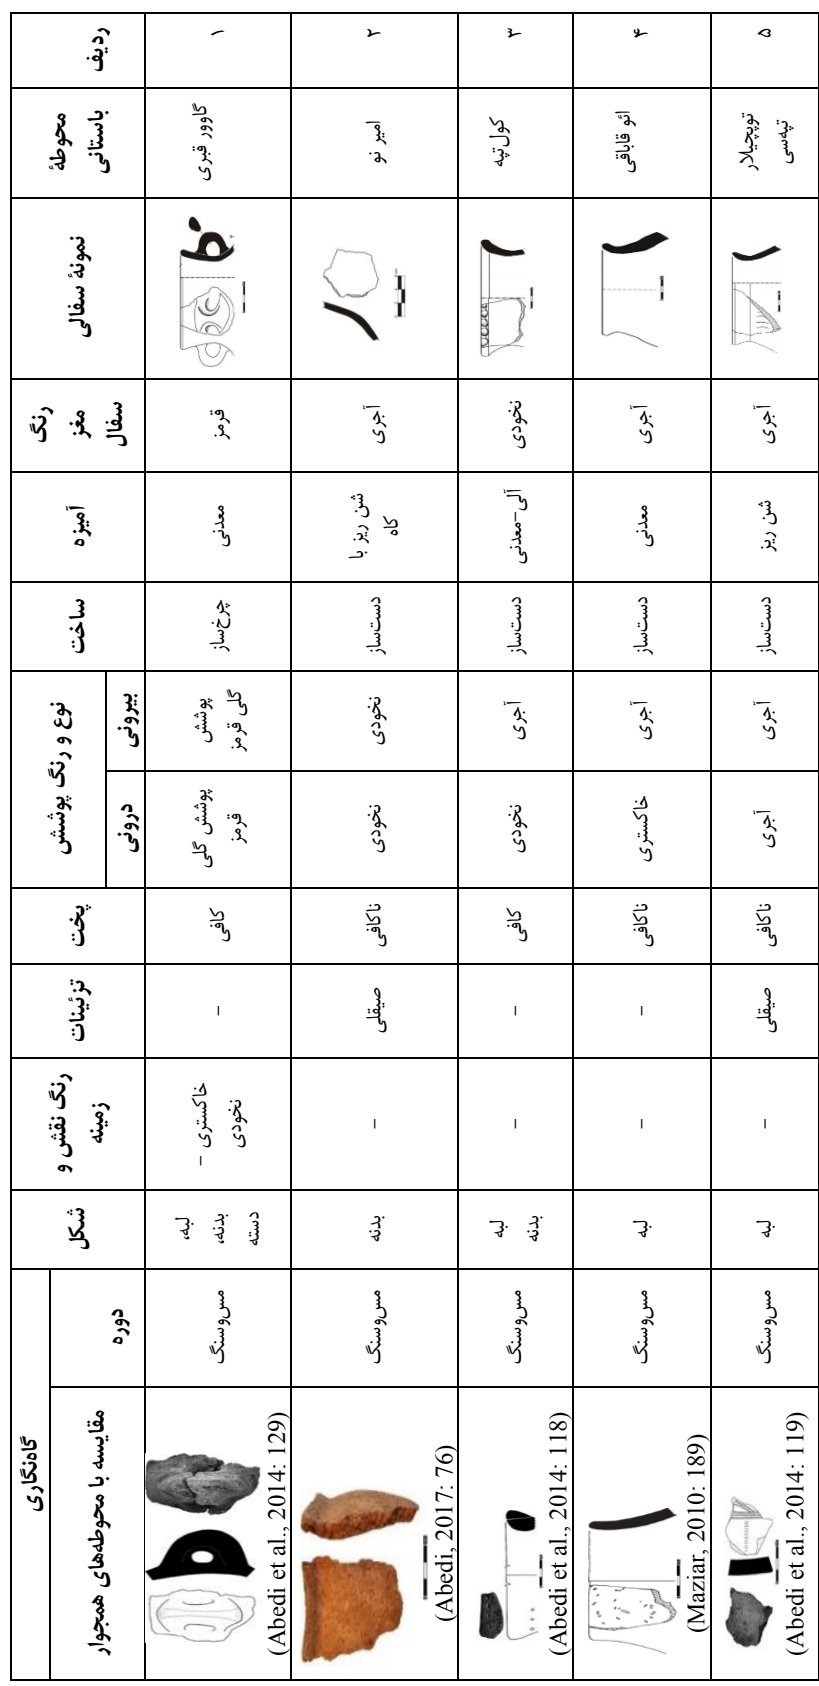 ردیف
محوطهٔ
باستانی
نمونهٔ سفالی
رنگ
مغز
سفال
آمیزه
ساخت
نوع و رنگ پوشش
بیرونی
درونی
پخت
تزئینات
رنگ نقش و
زمینه
شکل
گاه‌نگاری
دوره
مقایسه با محوطه‌های همجوار
۱
گاوور قبری
قرمز
معدنی
چرخ‌ساز
پوشش
گلی قرمز
پوشش گلی
قرمز
کافی
-
خاکستری -
نخودی
لبه،
بدنه،
دسته
مس‌وسنگ
(Abedi et al., 2014: 129)
۲
امیر نو
آجری
شن ریز با
کاه
دست‌ساز
نخودی
نخودی
ناکافی
صیقلی
-
بدنه
مس‌وسنگ
(Abedi, 2017: 76)
۳
کول‌تپه
نخودی
آلی-معدنی
دست‌ساز
آجری
نخودی
کافی
-
-
لبه
بدنه
مس‌وسنگ
(Abedi et al., 2014: 118)
۴
ائو قاباقی
آجری
معدنی
دست‌ساز
آجری
خاکستری
ناکافی
-
-
لبه
مس‌وسنگ
(Maziar, 2010: 189)
۵
توپچیلار
تپه‌سی
آجری
شن ریز
دست‌ساز
آجری
آجری
ناکافی
صیقلی
-
لبه
مس‌وسنگ
(Abedi et al., 2014: 119)